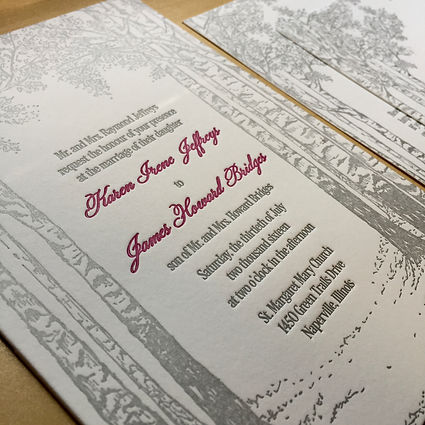 Mr. and Mrs. Raymond Jeffreys
request the honour of your presence
at the marriage of their daughter
Karen Irene Jeffreys
to
James Howard Bridges
son of Mr. and Mrs. Howard Bridges
Saturday, the thirtieth of July
two thousand sixteen
at two o'clock in the afternoon
St. Margaret Mary Church
1450 Green Trails Drive
Naperville, Illinois